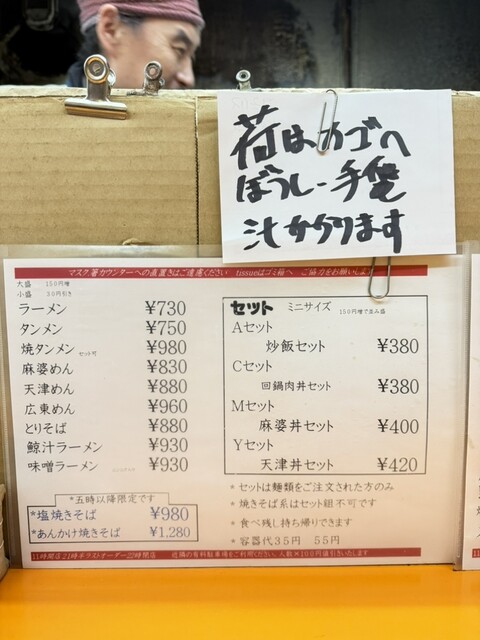 荷はカゴへ
ぼうし、手袋
汁かかります
マスク、箸カウンターへの直置きはご遠慮ください　tissueはゴミ箱へ　ご協力をお願いします
大盛　150円増
小盛　30円引き
ラーメン　¥730
タンメン　¥750
焼タンメン　セット可　¥980
麻婆めん　¥830
天津めん　¥880
広東めん　¥960
とりそば　¥880
鯨汁ラーメン　¥930
味噌ラーメン　¥930
*五時以降限定です
*塩焼きそば　¥980
*あんかけ焼きそば　¥1,280
セット　ミニサイズ　150円増で並み盛
Aセット
炒飯セット　¥380
Cセット
回鍋肉丼セット　¥380
Mセット
麻婆丼セット　¥400
Yセット
天津丼セット　¥420
*セットは麺類をご注文された方のみ
*焼きそば系はセット組不可です
*食べ残し持ち帰りできます
*容器代35円　55円
11時開店21時半ラストオーダー22時閉店　近隣の有料駐車場をご利用ください、人数×100円値引きいたします